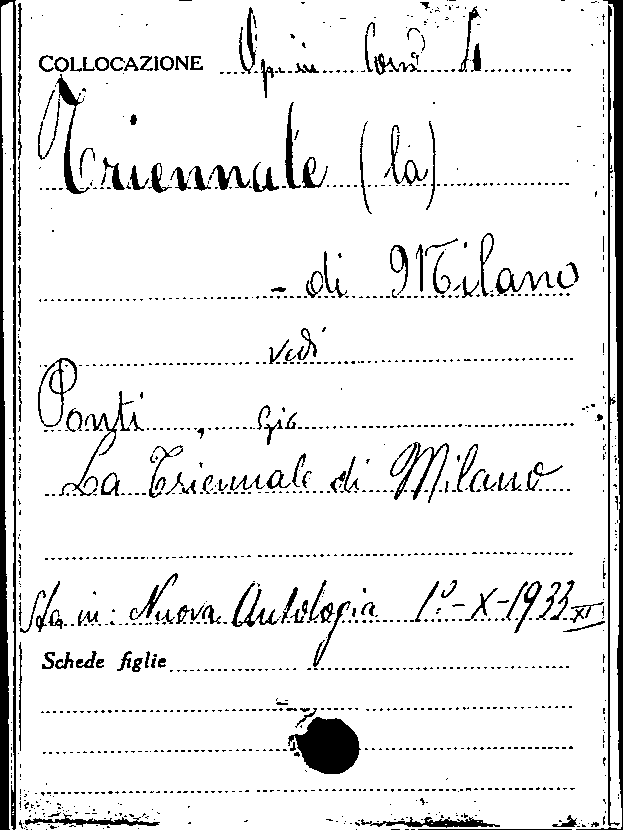 COLLOCAZIONE Op. in
Triennale (la)
- di Milano
vedi
Ponti, Gio
La Triennale di Milano
Sta in: Nuova Antologia 1º-X-1933 XI
Schede figlie